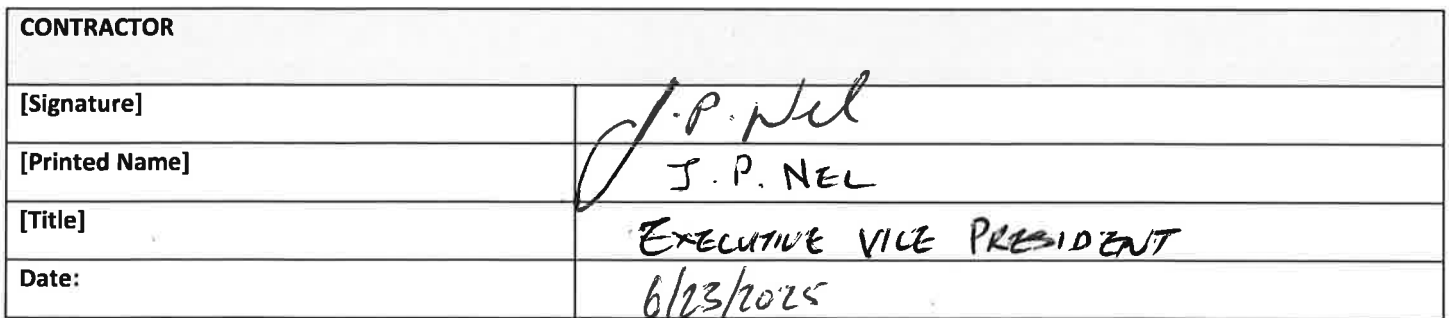 CONTRACTOR
[Signature] J.P. Nel
[Printed Name] J.P. NEL
[Title] EXECUTIVE VICE PRESIDENT
Date: 6/23/2025